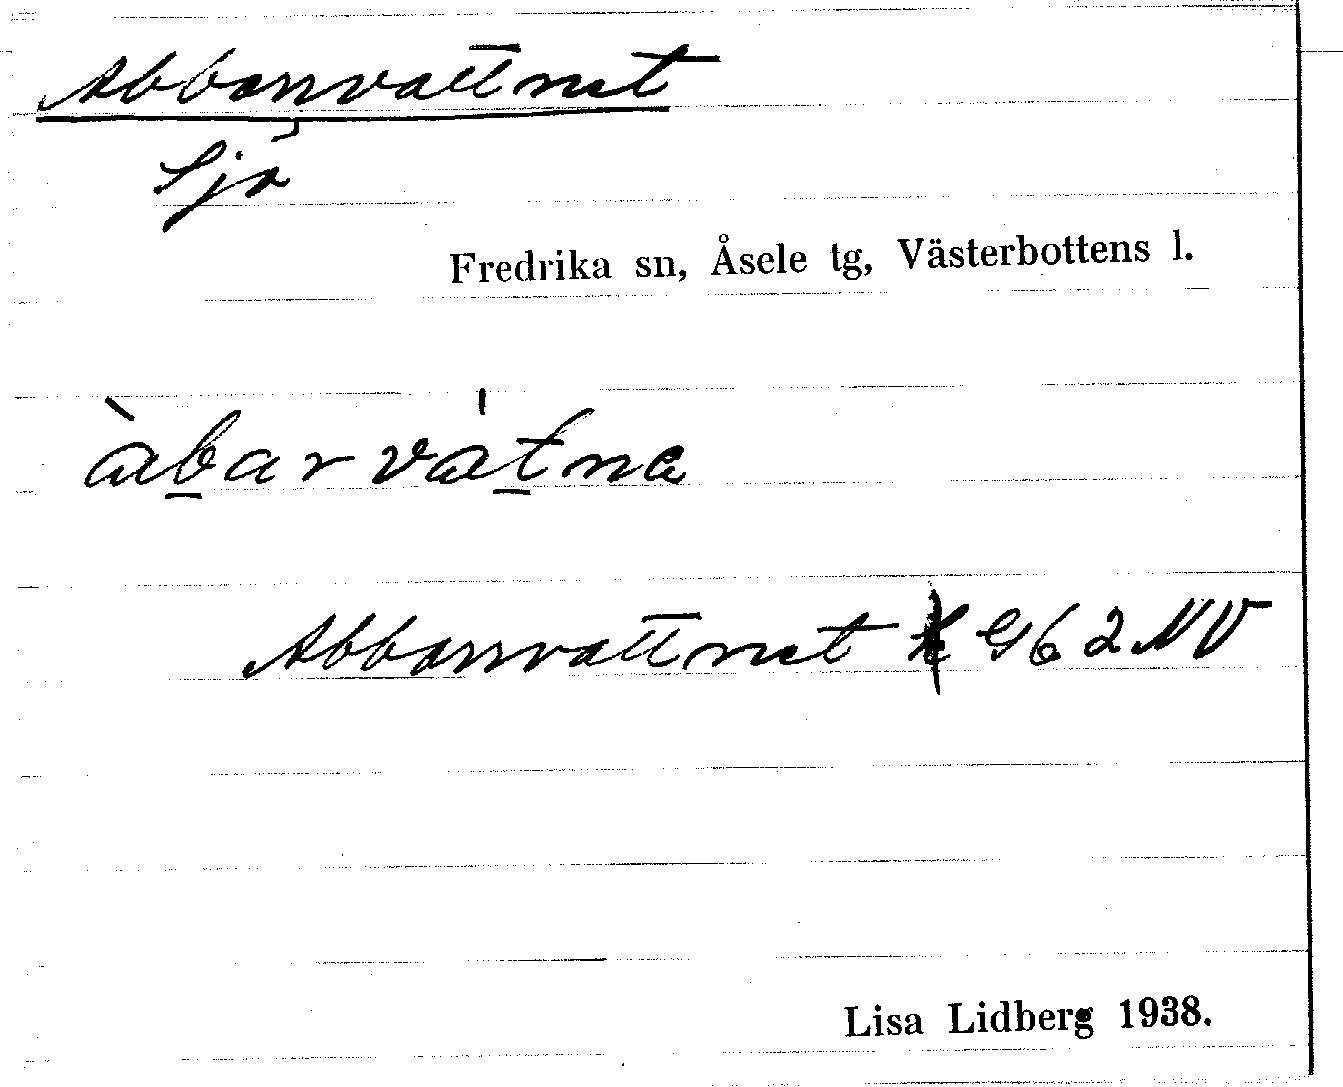 Abbarrvattnet
Sjö
Fredrika sn, Åsele tg, Västerbottens l.
àb̲arvát̲na
Abbarrvattnet G62NV
Lisa Lidberg 1938.